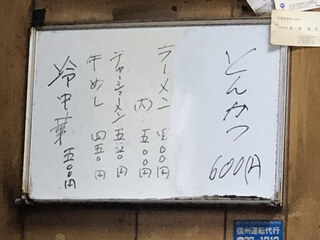 とんかつ
600円
ラーメン 400円
肉 500円
チャーシューメン 五五〇円
牛めし 四五〇円
冷中華 五〇〇円
信州運転代行